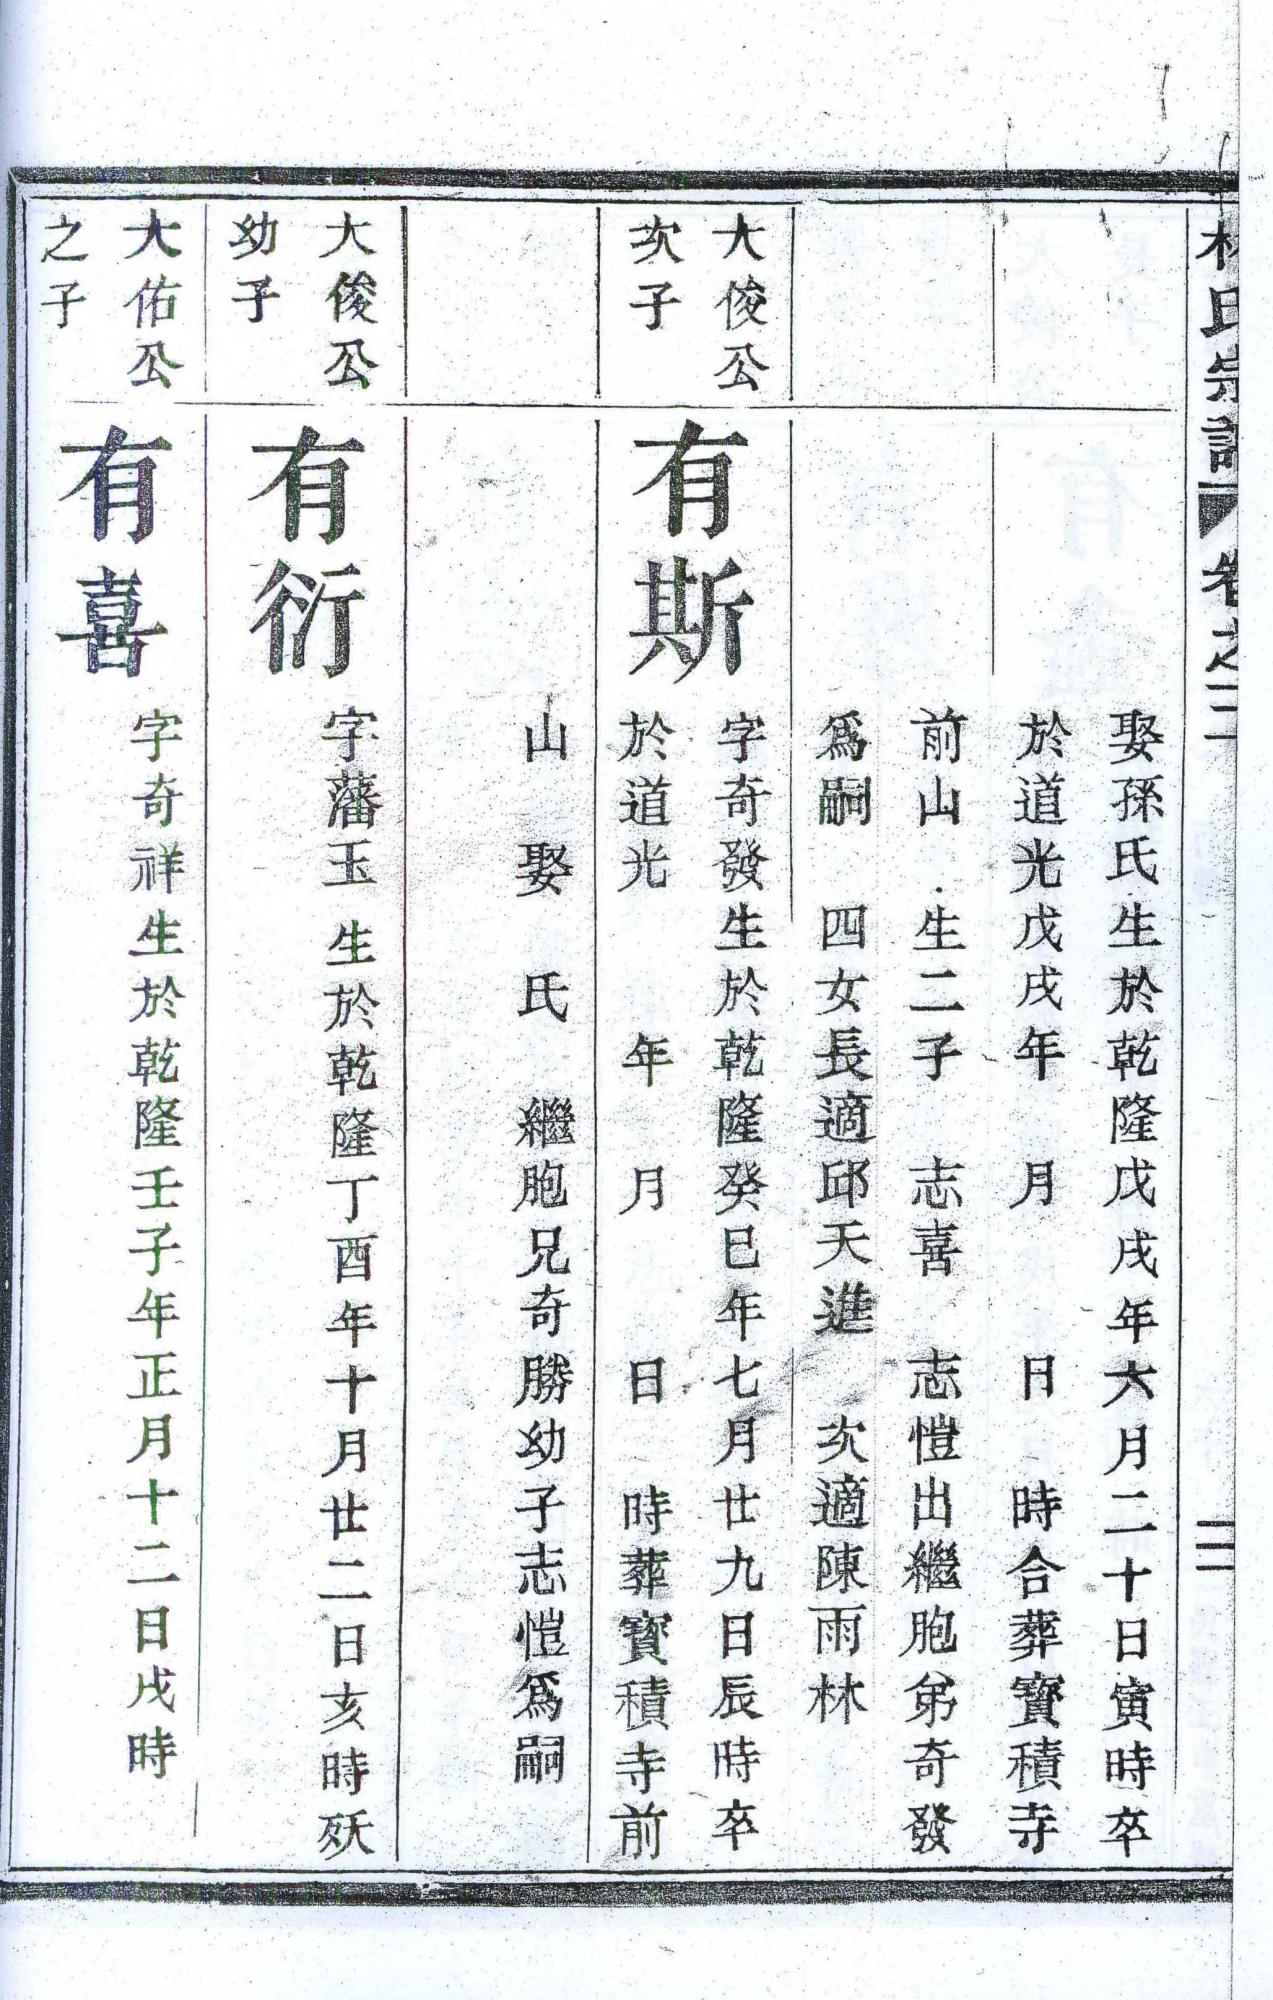 林氏宗譜 卷之二 三
娶孫氏生於乾隆戊戌年六月二十日寅時卒
於道光戊戌年 月 日 時合葬寶積寺
前山 生二子 志喜 志愷出繼胞弟奇發
爲嗣 四女長適邱天進 次適陳雨林
大俊公
次子
有斯
字奇發生於乾隆癸巳年七月廿九日辰時卒
於道光 年 月 日 時葬寶積寺前
山 娶 氏 繼胞兄奇勝幼子志愷爲嗣
大俊公
幼子
有衍
字藩玉生於乾隆丁酉年十月廿二日亥時殀
大佑公
之子
有喜
字奇祥生於乾隆壬子年正月十二日戌時